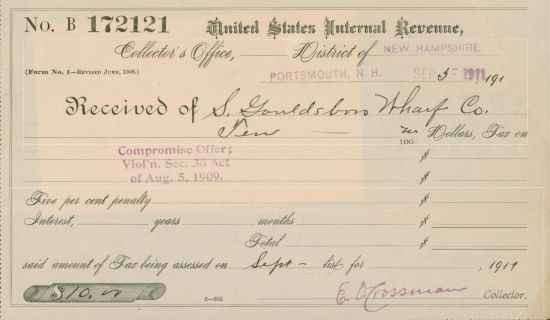 No. B 172121 United States Internal Revenue,
Collector's Office, District of NEW HAMPSHIRE
(Form No. 1—Revised June, 1908.) PORTSMOUTH, N. H. SEP 5- 1911 191
Received of S. Gouldsboro Wharf Co.
Ten — no/100 Dollars, Tax on
Compromise Offer;
Viol'n. Sec. 38 Act
of Aug. 5, 1909.
Five per cent penalty
Interest, years months
Total
said amount of Tax being assessed on Sept - list for , 1911
$10.00 2—602 E O Crossman Collector.